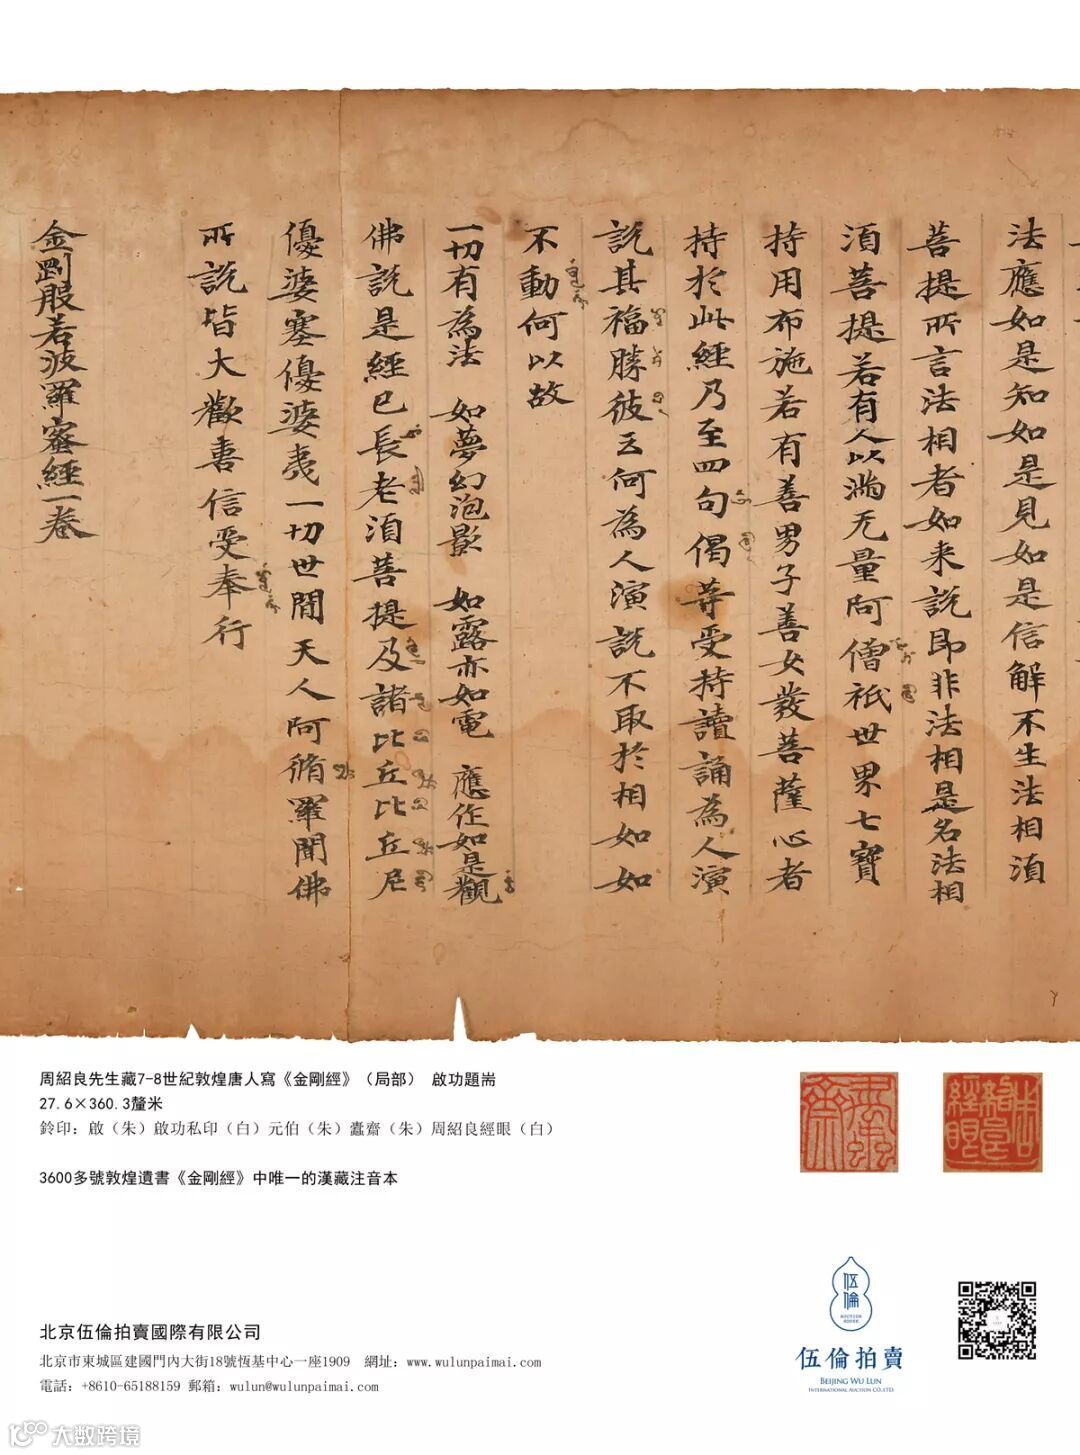 法應如是知如是見如是信解不生法相湏
菩提所言法相者如来說即非法相是名法相
湏菩提若有人以滿无量阿僧祇世界七寶
持用布施若有善男子善女發菩薩心者
持於此經乃至四句偈等受持讀誦為人演
說其福勝彼云何為人演說不取於相如如
不動何以故
一切有為法 如夢幻泡影 如露亦如電 應作如是觀
佛說是經已長老湏菩提及諸比丘比丘尼
優婆塞優婆夷一切世間天人阿脩羅聞佛
所說皆大歡喜信受奉行
金剛般若波羅蜜經一卷
周紹良先生藏7-8世紀敦煌唐人寫《金剛經》（局部） 啟功題耑
27.6×360.3釐米
鈐印：啟（朱）啟功私印（白）元伯（朱）蠹齋（朱）周紹良經眼（白）
3600多號敦煌遺書《金剛經》中唯一的漢藏注音本
蠹齋
周紹良經眼
北京伍倫拍賣國際有限公司
北京市東城區建國門內大街18號恆基中心一座1909 網址：www.wulunpaimai.com
電話：+8610-65188159 郵箱：wulun@wulunpaimai.com
伍倫
AUCTION HOUSE
伍倫拍賣
BEIJING WU LUN
INTERNATIONAL AUCTION CO.,LTD.
大数跨境